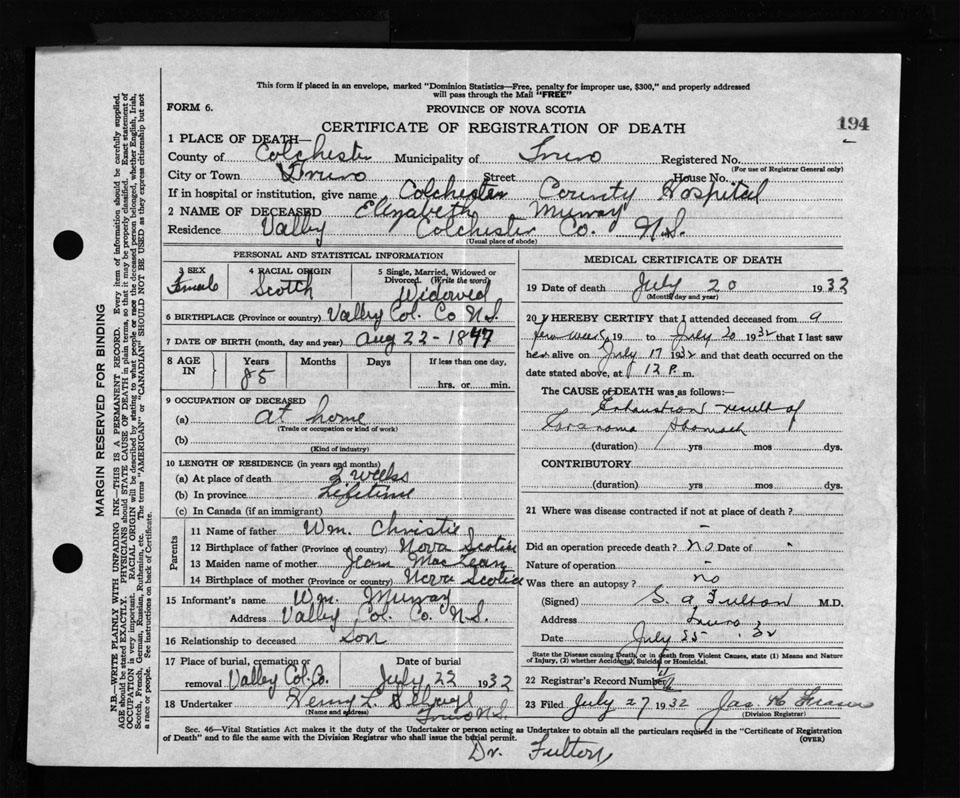 This form if placed in an envelope, marked "Dominion Statistics—Free, penalty for improper use, $300," and properly addressed
will pass through the Mail "FREE"
FORM 6.
PROVINCE OF NOVA SCOTIA
CERTIFICATE OF REGISTRATION OF DEATH
194
1 PLACE OF DEATH—
County of Colchester Municipality of Truro Registered No.
(For use of Registrar General only)
City or Town Truro Street House No.
If in hospital or institution, give name Colchester County Hospital
2 NAME OF DECEASED Elizabeth Murray
Residence Valley Colchester Co. N.S.
(Usual place of abode)
PERSONAL AND STATISTICAL INFORMATION
3 SEX Female
4 RACIAL ORIGIN Scotch
5 Single, Married, Widowed or Divorced. (Write the word) Widowed
6 BIRTHPLACE (Province or country) Valley Col. Co N.S.
7 DATE OF BIRTH (month, day and year) Aug 22 - 1847
8 AGE IN Years 85 Months Days If less than one day, hrs. or min.
9 OCCUPATION OF DECEASED
(a) at home
(Trade or occupation or kind of work)
(b)
(Kind of industry)
10 LENGTH OF RESIDENCE (in years and months)
(a) At place of death 3 weeks
(b) In province Lifetime
(c) In Canada (if an immigrant)
Parents
11 Name of father Wm. Christie
12 Birthplace of father (Province or country) Nova Scotia
13 Maiden name of mother Jean MacLean
14 Birthplace of mother (Province or country) Nova Scotia
15 Informant's name Wm. Murray
Address Valley Col. Co. N.S.
16 Relationship to deceased Son
17 Place of burial, cremation or removal Valley Col. Co. Date of burial July 22 1932
18 Undertaker Henry L.
(Name and address) Truro N.S.
MEDICAL CERTIFICATE OF DEATH
19 Date of death July 20 1932
(Month, day and year)
20 I HEREBY CERTIFY that I attended deceased from a
few weeks 19 to July 20 1932 that I last saw
her alive on July 17 1932 and that death occurred on the
date stated above, at 12 P. m.
The CAUSE OF DEATH was as follows:—
Exhaustion result of
stomach
(duration) yrs mos dys.
CONTRIBUTORY
(duration) yrs mos dys.
21 Where was disease contracted if not at place of death?
-
Did an operation precede death? no Date of
Nature of operation -
Was there an autopsy? no
(Signed) S. A Fulton M.D.
Address Truro
Date July 25 . 32
State the Disease causing Death, or in death from Violent Causes, state (1) Means and Nature of Injury, (2) whether Accidental, Suicidal or Homicidal.
22 Registrar's Record Number
23 Filed July 27 1932 Jas K Fraser
(Division Registrar)
Sec. 46—Vital Statistics Act makes it the duty of the Undertaker or person acting as Undertaker to obtain all the particulars required in the "Certificate of Registration
of Death" and to file the same with the Division Registrar who shall issue the burial permit.
(OVER)
Dr. Fulton
MARGIN RESERVED FOR BINDING
N.B.—WRITE PLAINLY WITH UNFADING INK—THIS IS A PERMANENT RECORD. Every item of information should be carefully supplied.
AGE should be stated EXACTLY. PHYSICIANS should STATE CAUSE OF DEATH in plain terms, so that it may be properly classified. Exact statement of
OCCUPATION is very important. RACIAL ORIGIN will be described by stating to what people or race the deceased person belonged, whether English, Irish,
Scotch, French, German, Russian, Ruthenian, etc. The terms "AMERICAN" or "CANADIAN" SHOULD NOT BE USED as they express citizenship but not
a race or people. See instructions on back of Certificate.